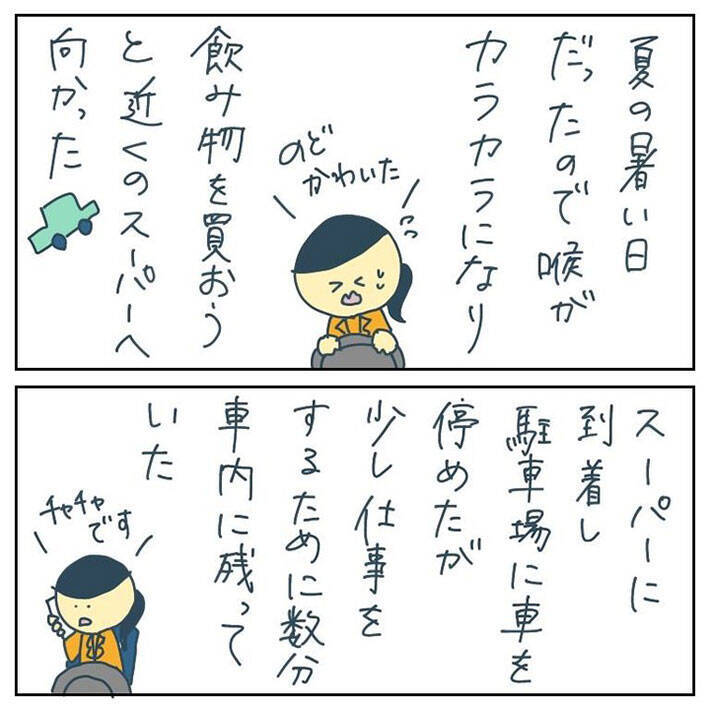 夏の暑い日
だったので喉が
カラカラになり
のど
かわいた
飲み物を買おう
と近くのスーパーへ
向かった
スーパーに
到着し
駐車場に車を
停めたが
少し仕事を
するために数分
車内に残って
いた
チャチャ
です